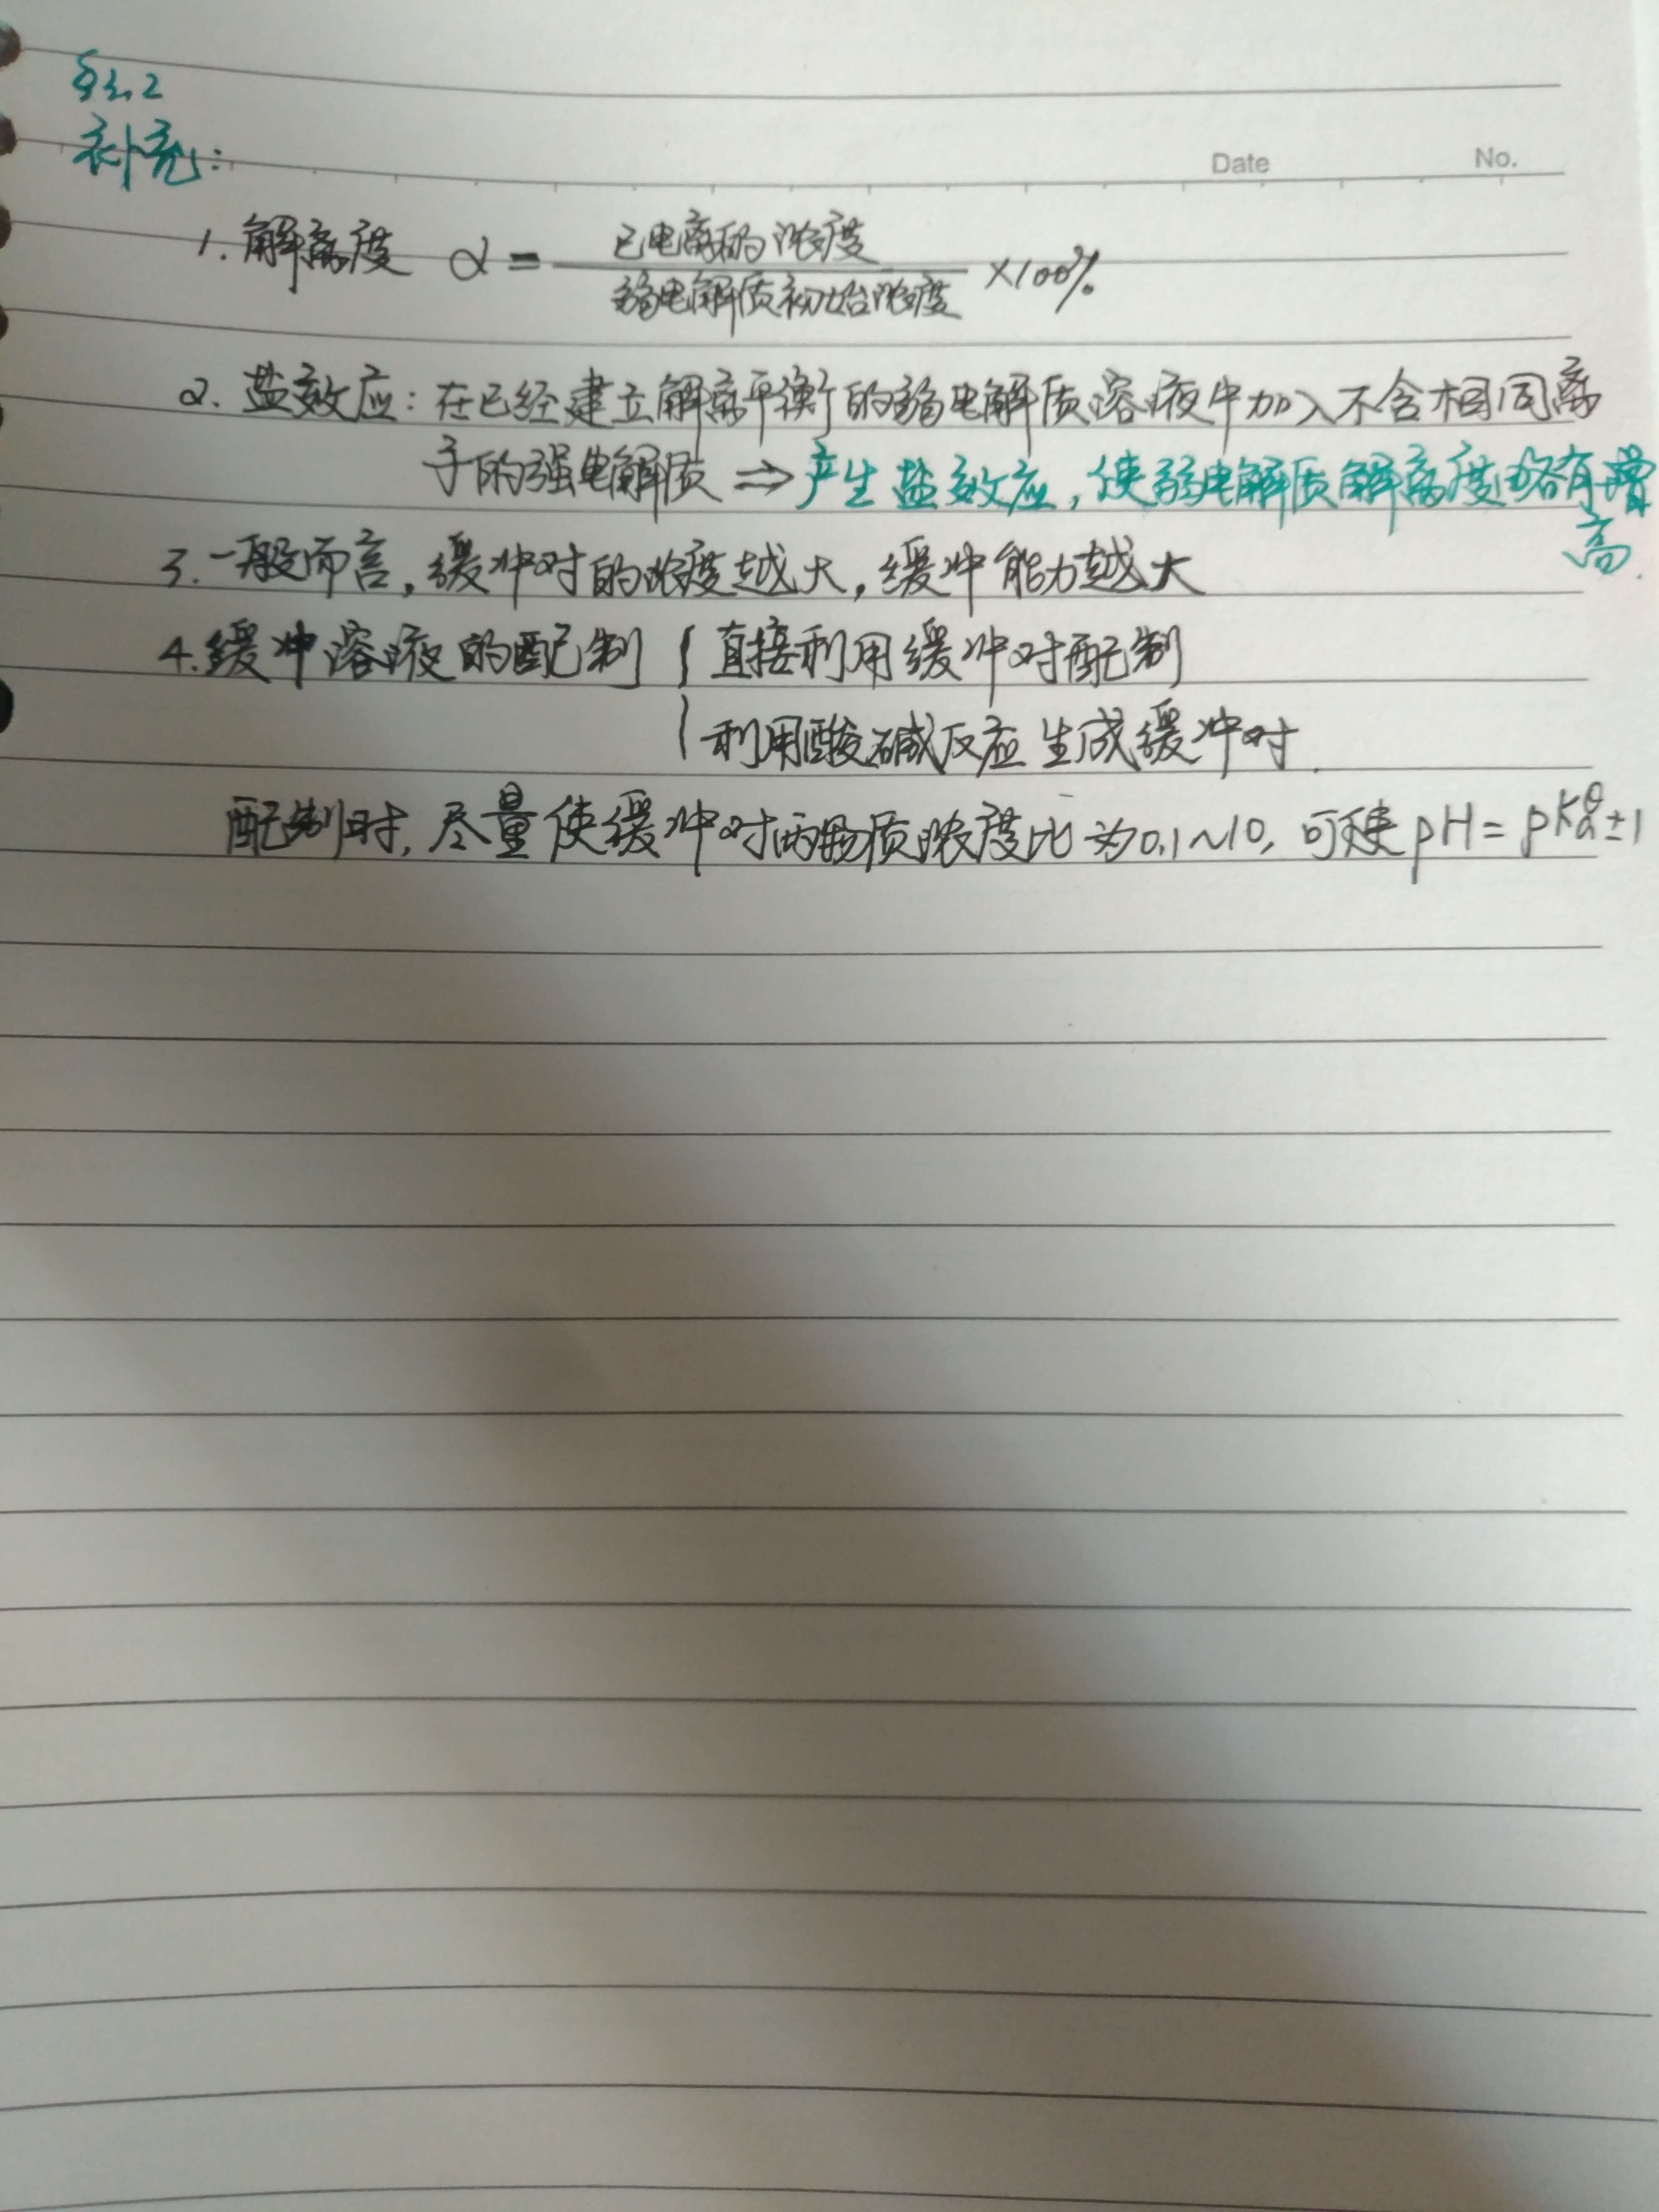 §3.2
补充:
Date No.
1. 解离度 α = 已电离的浓度 / 弱电解质初始浓度 ×100%
2. 盐效应: 在已经建立解离平衡的弱电解质溶液中加入不含相同离
子的强电解质 ⇒ 产生盐效应, 使弱电解质解离度略有增
高.
3. 一般而言, 缓冲对的浓度越大, 缓冲能力越大
4. 缓冲溶液的配制 { 直接利用缓冲对配制
利用酸碱反应生成缓冲对.
配制时, 尽量使缓冲对两物质浓度比为0.1~10, 可使 pH = pKaθ ± 1